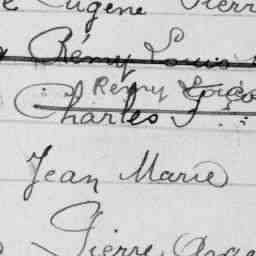 Eugène Pierr
Rémy Louis
Remy
Charles J
Jean Marie
Pierre